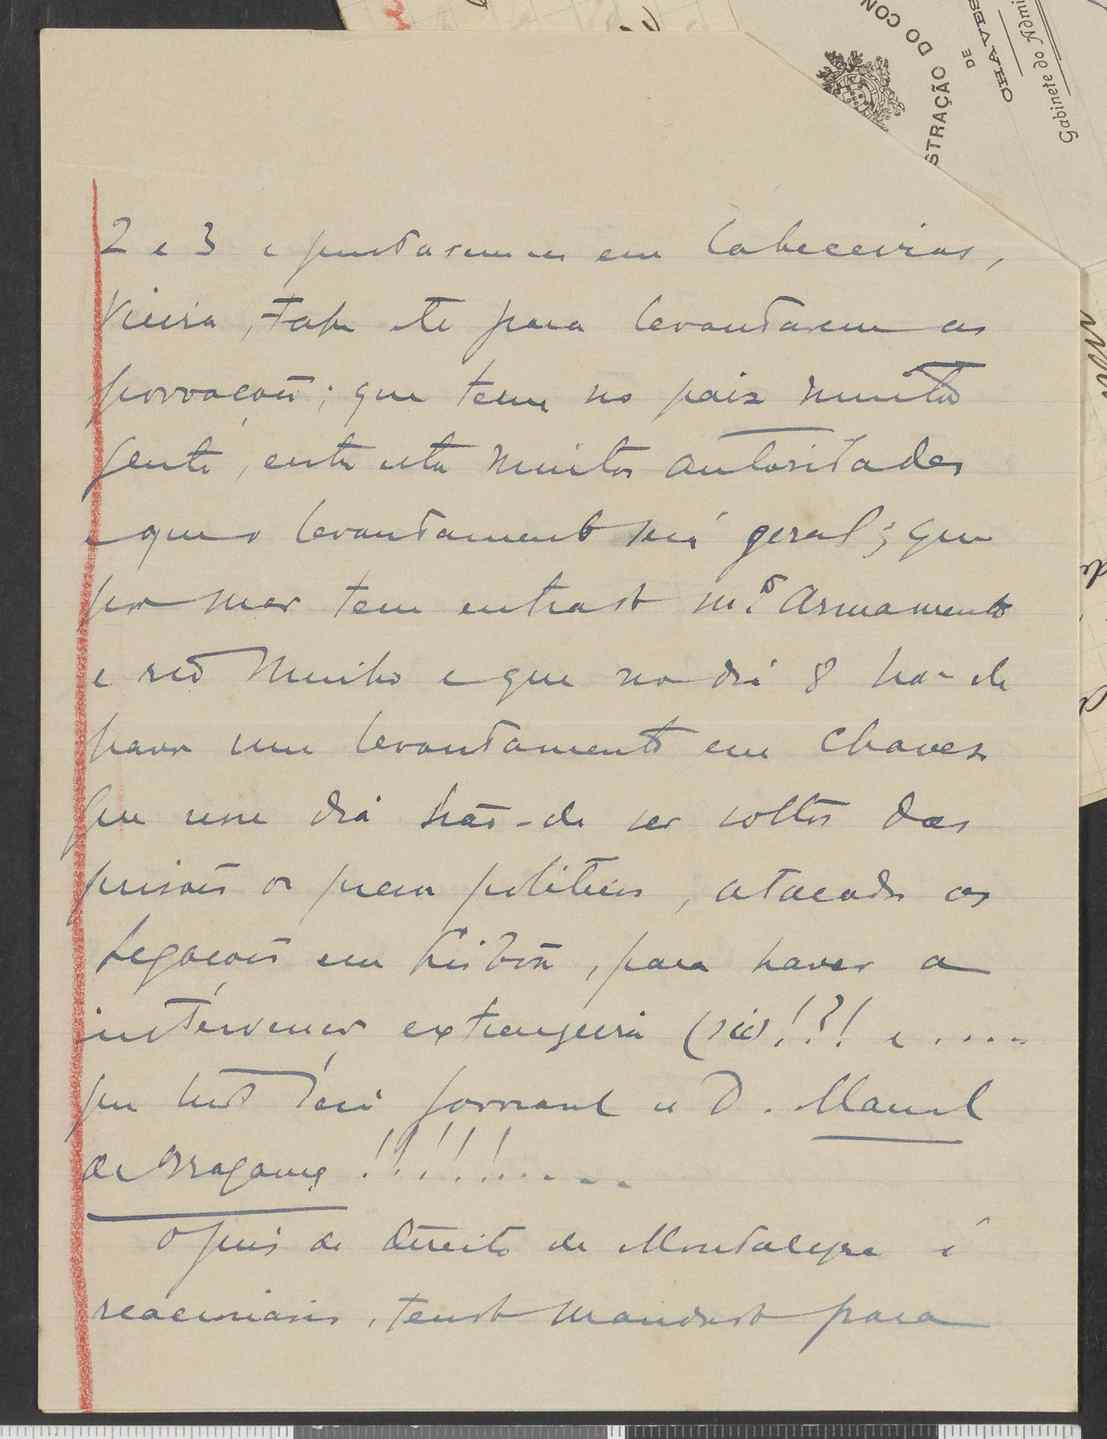 STRAÇÃO DO CON
DE
CHAVES
Gabinete do Admi
2 e 3 e juntarem-se em Cabeceiras,
Vieira, etc para levantarem as
povoações; que tem no paiz muita
gente, entre esta muitas autoridades
e que o levantamento será geral; que
por mar tem entrado m.to armamento
e rio Minho e que no dia 8 ha-de
haver um levantamento em Chaves
que nesse dia hão-de ser soltos das
prisões os presos politicos, atacadas as
Legações em Lisboa, para haver a
intervenção extrangeira (sic)!?! e .....
que tudo será forçado a D. Manuel
de Bragança !!!!!!....
O juiz de direito de Montalegre é
reacionario, tendo mandado para